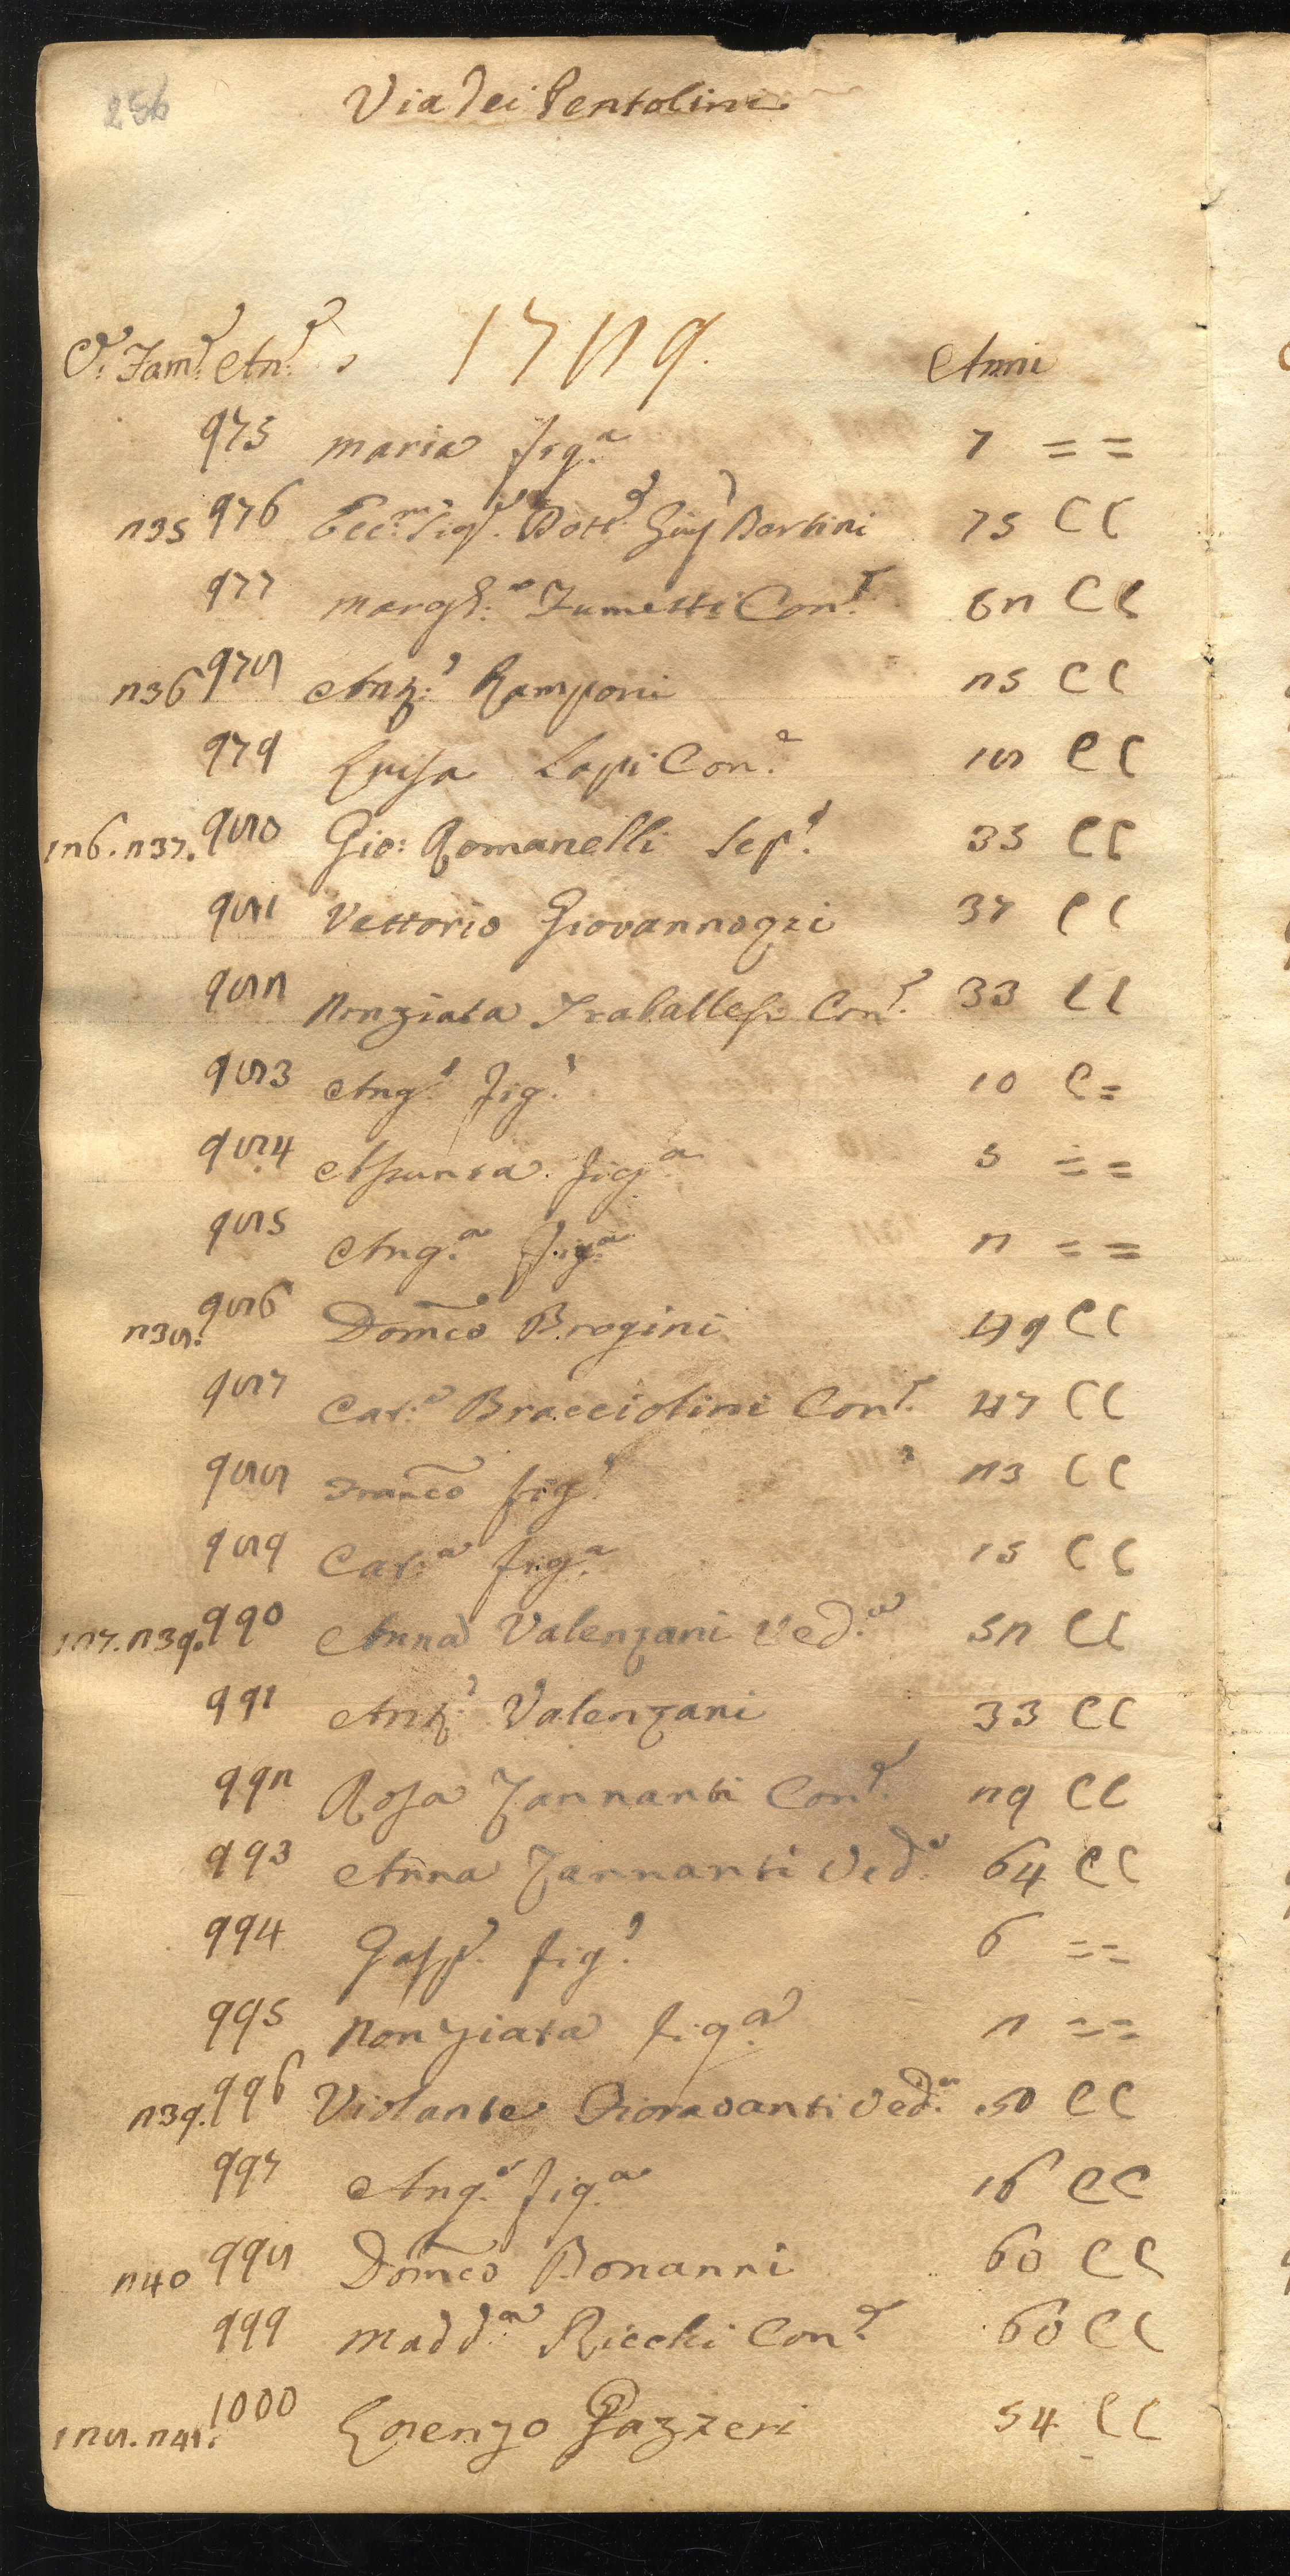 256
Via dei Pentolini
C. Fam. An. 1729. Anni
975 maria fig.a 7 = =
235 976 Ecc.mo Sig.r Dott. Bertini 75 C C
977 margh.a Fumetti Con.e 62 C C
236 978 Ant.o Ramponi 25 C C
979 Luisa Lapi Con.e 18 C C
126. 237. 980 Gio: Romanelli Sep.e 35 C C
981 Vettorio Giovannozzi 37 C C
982 Nonziata Traballesi Con.e 33 C C
983 Ang.o fig.o 10 C =
984 Assunta fig.a 5 = =
985 Ang.a fig.a 2 = =
238. 986 Dom̃co Brogini 49 C C
987 Cat.a Bracciolini Con.e 47 C C
988 Franc̃o fig.o 23 C C
989 Cat.a fig.a 15 C C
127. 239. 990 Anna Valenzani Ved.a 52 C C
991 Ant.o Valenzani 33 C C
992 Rosa Zannanti Con.e 29 C C
993 Anna Zannanti Ved.a 64 C C
994 Gasp.e fig.o 6 = =
995 Nonziata fig.a 2 = =
239. 996 Violante Fioravanti Ved.a 50 C C
997 Ang.a fig.a 16 C C
240 998 Dom̃co Bonanni 60 C C
999 Madd.a Ricchi Con.e 60 C C
128. 241. 1000 Lorenzo Gazzeri 54 C C